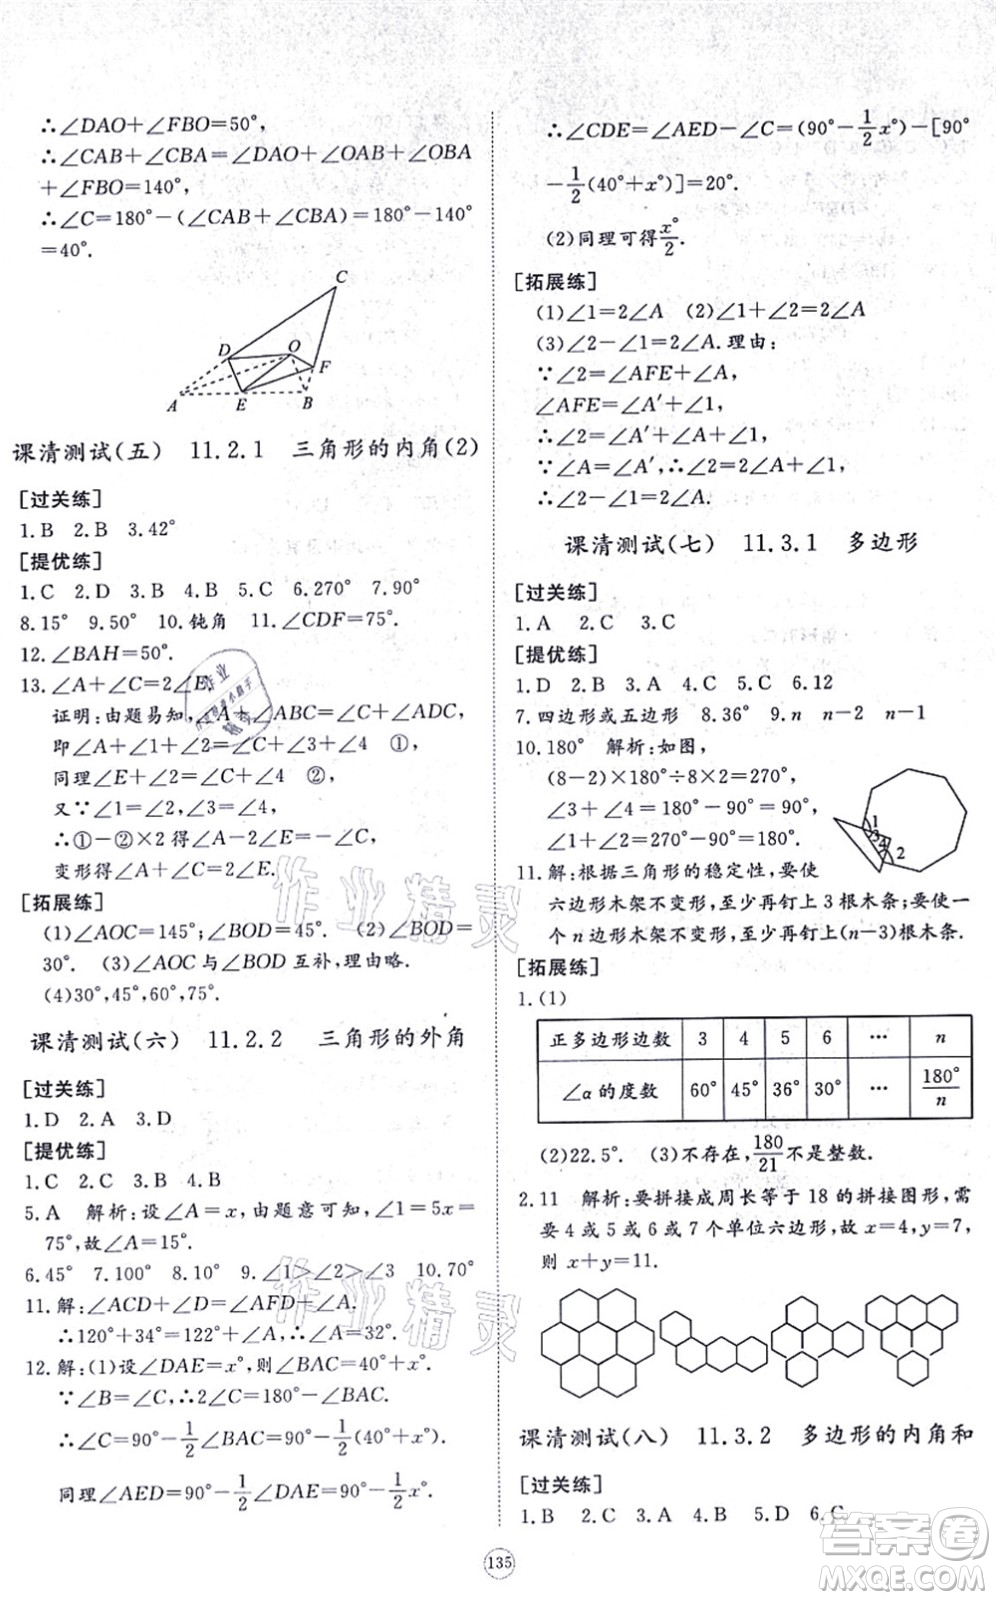 ∴∠DAO+∠FBO=50°,
∴∠CAB+∠CBA=∠DAO+∠OAB+∠OBA
+∠FBO=140°.
∴∠C=180°-(∠CAB+∠CBA)=180°-140°
=40°.
C
D
O
F
A
E
B
课清测试(五) 11.2.1 三角形的内角(2)
[过关练]
1.B 2.B 3.42°
[提优练]
1.C 2.D 3.B 4.B 5.C 6.270° 7.90°
8.15° 9.50° 10.钝角 11.∠CDF=75°.
12.∠BAH=50°.
13.∠A+∠C=2∠E.
证明:由题易知,∠A+∠ABC=∠C+∠ADC,
即∠A+∠1+∠2=∠C+∠3+∠4 ①,
同理∠E+∠2=∠C+∠4 ②,
又∵∠1=∠2,∠3=∠4,
∴①-②×2得∠A-2∠E=-∠C,
变形得∠A+∠C=2∠E.
[拓展练]
(1)∠AOC=145°;∠BOD=45°. (2)∠BOD=
30°. (3)∠AOC与∠BOD互补,理由略.
(4)30°,45°,60°,75°.
课清测试(六) 11.2.2 三角形的外角
[过关练]
1.D 2.A 3.D
[提优练]
1.C 2.C 3.B 4.B
5.A 解析:设∠A=x,由题意可知∠1=5x=
75°,故∠A=15°.
6.45° 7.100° 8.10° 9.∠1>∠2>∠3 10.70°
11.解:∠ACD+∠D=∠AFD+∠A.
∴120°+34°=122°+∠A,∴∠A=32°.
12.解:(1)设∠DAE=x°,则∠BAC=40°+x°.
∵∠B=∠C,∴2∠C=180°-∠BAC.
∴∠C=90°-1/2∠BAC=90°-1/2(40°+x°).
同理∠AED=90°-1/2∠DAE=90°-1/2x°.
∴∠CDE=∠AED-∠C=(90°-1/2x°)-[90°
-1/2(40°+x°)]=20°.
(2)同理可得x°/2.
[拓展练]
(1)∠1=2∠A (2)∠1+∠2=2∠A
(3)∠2-∠1=2∠A.理由:
∵∠2=∠AFE+∠A,
∠AFE=∠A′+∠1,
∴∠2=∠A′+∠A+∠1,
∵∠A=∠A′,∴∠2=2∠A+∠1,
∴∠2-∠1=2∠A.
课清测试(七) 11.3.1 多边形
[过关练]
1.A 2.C 3.C
[提优练]
1.D 2.D 3.B 4.C 5.C 6.12
7.四边形或五边形 8.36° 9.n n-2 n-1
10.180° 解析:如图,
(8-2)×180°÷8×2=270°,
∠3+∠4=180°-90°=90°,
∠1+∠2=270°-90°=180°.
1
3
4
2
11.解:根据三角形的稳定性,要使
六边形木架不变形,至少再钉上3根木条;要使一
个n边形木架不变形,至少再钉上(n-3)根木条.
[拓展练]
1.(1)
正多边形边数 3 4 5 6 … n
∠α的度数 60° 45° 36° 30° … 180°/n
(2)22.5°. (3)不存在,180/21不是整数.
2.11 解析:要拼接成周长等于18的拼接图形,需
要4或5或6或7个单位六边形,故x=4,y=7,
则x+y=11.
课清测试(八) 11.3.2 多边形的内角和
[过关练]
1.B 2.C 3.A 4.B 5.D 6.C
135
作业精灵
作业精灵
答案卷
MXQE.COM